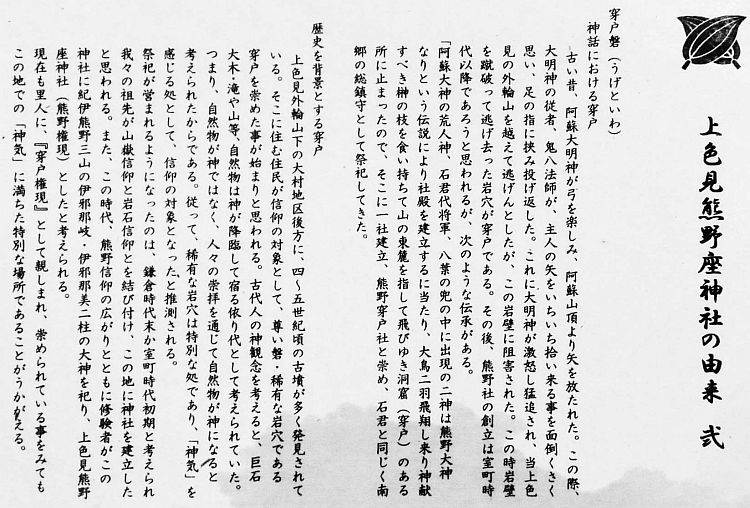 上色見熊野座神社の由来 弐
穿戸磐（うげといわ）
神話における穿戸
古い昔、阿蘇大明神が弓を楽しみ、阿蘇山頂より矢を放たれた。この際、
大明神の従者、鬼八法師が、主人の矢をいちいち拾い来る事を面倒くさく
思い、足の指に挟み投げ返した。これに大明神が激怒し猛追され、当上色
見の外輪山を越えて逃げんとしたが、この岩壁に阻害された。この時岩壁
を蹴破って逃げ去った岩穴が穿戸である。その後、熊野社の創立は室町時
代以降であろうと思われるが、次のような伝承がある。
「阿蘇大神の荒人神、石君代将軍、八葉の兜の中に出現の二神は熊野大神
なりという伝説により社殿を建立するに当たり、大鳥二羽飛翔し来り神献
すべき榊の枝を食い持ちて山の東麓を指して飛びゆき洞窟（穿戸）のある
所に止まったので、そこに一社建立、熊野穿戸社と崇め、石君と同じく南
郷の総鎮守として祭祀してきた。
歴史を背景とする穿戸
上色見外輪山下の大村地区後方に、四～五世紀頃の古墳が多く発見されて
いる。そこに住む住民が信仰の対象として、尊い磐・稀有な岩穴である
穿戸を崇めた事が始まりと思われる。古代人の神観念を考えると、巨石
大木・滝や山等、自然物は神が降臨して宿る依り代として考えられていた。
つまり、自然物が神ではなく、人々の崇拝を通じて自然物が神になると
考えられたからである。従って、稀有な岩穴は特別な処であり、「神気」を
感じる処として、信仰の対象となったと推測される。
祭祀が営まれるようになったのは、鎌倉時代末か室町時代初期と考えられ
我々の祖先が山嶽信仰と岩石信仰とを結び付け、この地に神社を建立した
と思われる。また、この時代、熊野信仰の広がりとともに修験者がこの
神社に紀伊熊野三山の伊邪那岐・伊邪那美二柱の大神を祀り、上色見熊野
座神社（熊野権現）としたと考えられる。
現在も里人に、『穿戸権現』として親しまれ、崇められている事をみても
この地での「神気」に満ちた特別な場所であることがうかがえる。